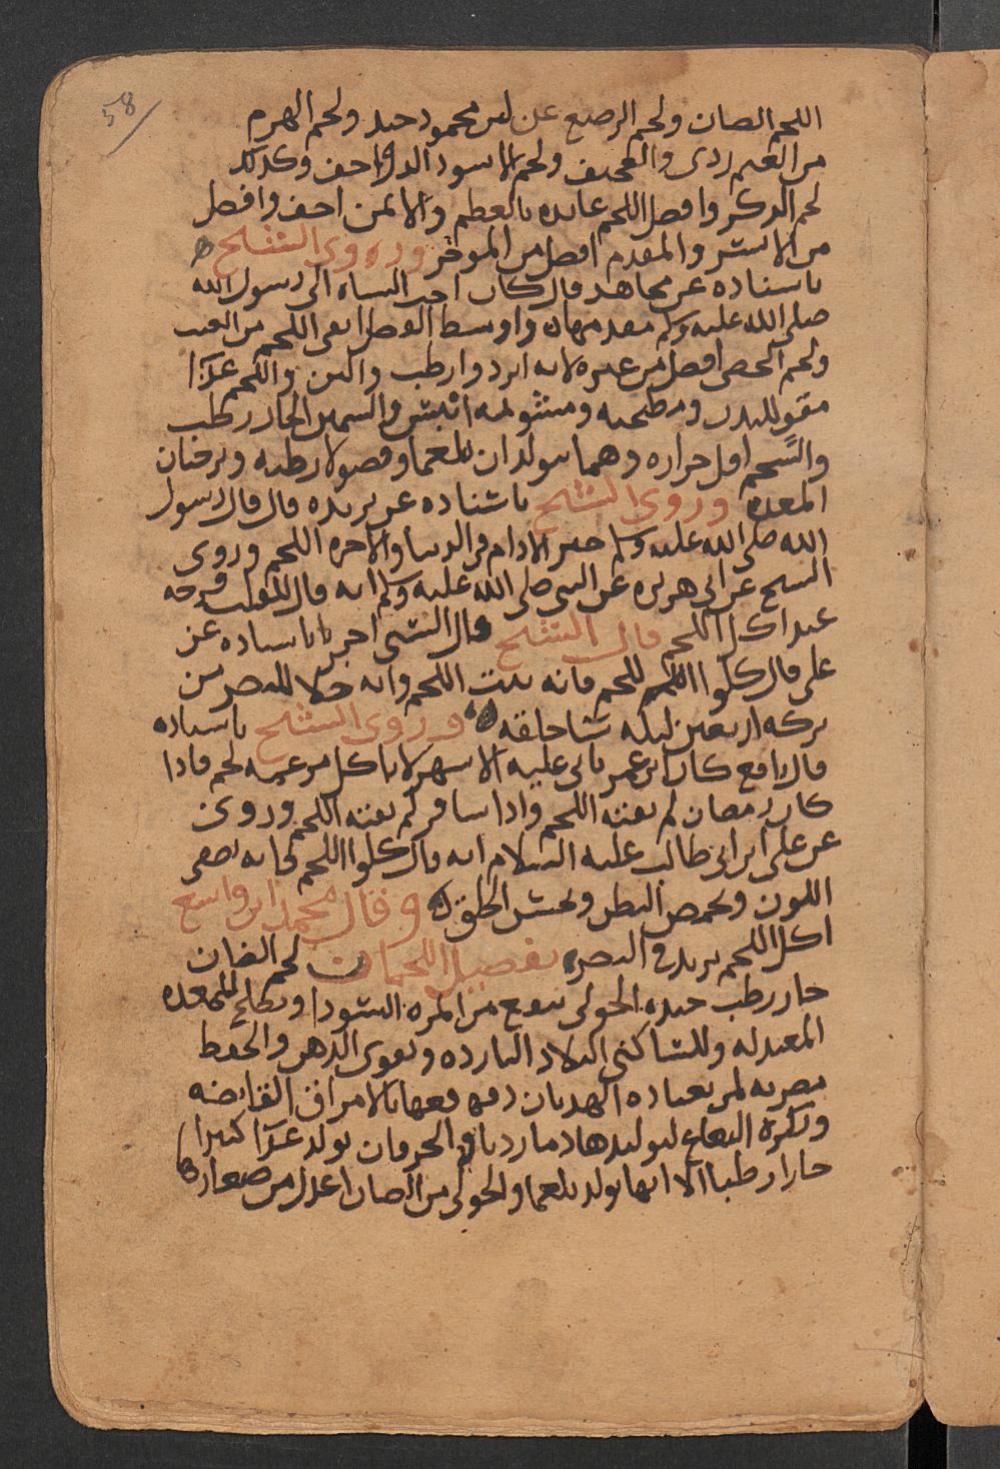 58
اللحم الضان ولحم الرضيع عن لبن محمود جيد ولحم الهرم
من الغنم ردى والعجيف ولحم الاسود الذ واخف وكذلك
لحم الذكر وافضل اللحم عايده بالعظم والايمن اخف وافضل
من الايسر والمقدم افضل من الموخر وروى الشيخ
باسناده عن مجاهد قال كان احب الشاه الى رسول الله
صلى الله عليه وسلم مقدمها واوسط
ولحم الخصى افضل من غيره لانه ابرد وارطب والين واللحم غذا
مقو للبدن ومطجنه ومشويه ايبس والسمين الحار رطب
والشحم اقل حراره وهما يولدان بلغما وفضولا رطبه ويرخيان
المعده وروى الشيخ باسناده عن بريده قال قال رسول
الله صلى الله عليه وسلم خير الادام فى الدنيا والاخره اللحم وروى
الشيخ عن ابى هريره عن النبى صلى الله عليه وسلم انه قال للقلب فرحه
عند اكل اللحم قال الشيخ باسناده عن
على قال كلوا اللحم فانه ينبت اللحم وانه جلا للبصر من
تركه اربعين ليله سا خلقه وروى الشيخ باسناده
قال نافع كان ابن عمر ياتى عليه الاشهر لا ياكل لحم فاذا
كان رمضان لم يفته اللحم واذا سافر لم يفته اللحم وروى
عن على ابن ابى طالب عليه السلام انه قال كلوا اللحم فانه يصفى
اللون ويخمص البطن ويحسن الخلق وقال محمد ابن واسع
اكل اللحم يزيد فى البصر تفصيل اللحمان لحم الضان
حار رطب جيده الحولى ينفع من المره السودا ويصلح للمعده
المعتدله ولساكنى البلاد البارده ويقوى الذهن والحفظ
مضرته لمن يعتاده دفع دفعها بالامراق القابضه
ويكره النعاج لتوليدها دما رديا ولحم الخرفان يولد غذا كثيرا
حارا رطبا الا انها يولد بلغما والحولى من الضان اعدل من صغارها